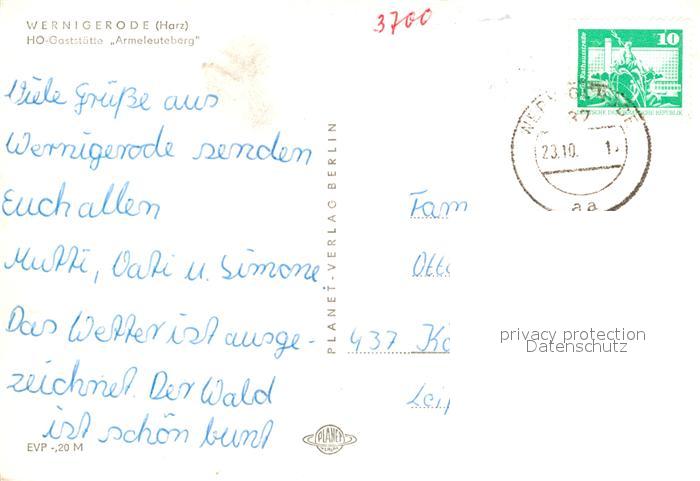 WERNIGERODE (Harz)
HO-Gaststätte „Armeleuteberg"
3700
10
Berlin, Rathausstraße
DEUTSCHE DEMOKRATISCHE REPUBLIK
23.10.
aa
Viele Grüße aus
Wernigerode senden
Euch allen
Mutti, Vati u. Simone
Das Wetter ist ausge-
zeichnet. Der Wald
ist schön bunt
PLANET-VERLAG BERLIN
Fam
Otto
437 Kö
Leip
privacy protection
Datenschutz
PLANET
EVP -,20 M